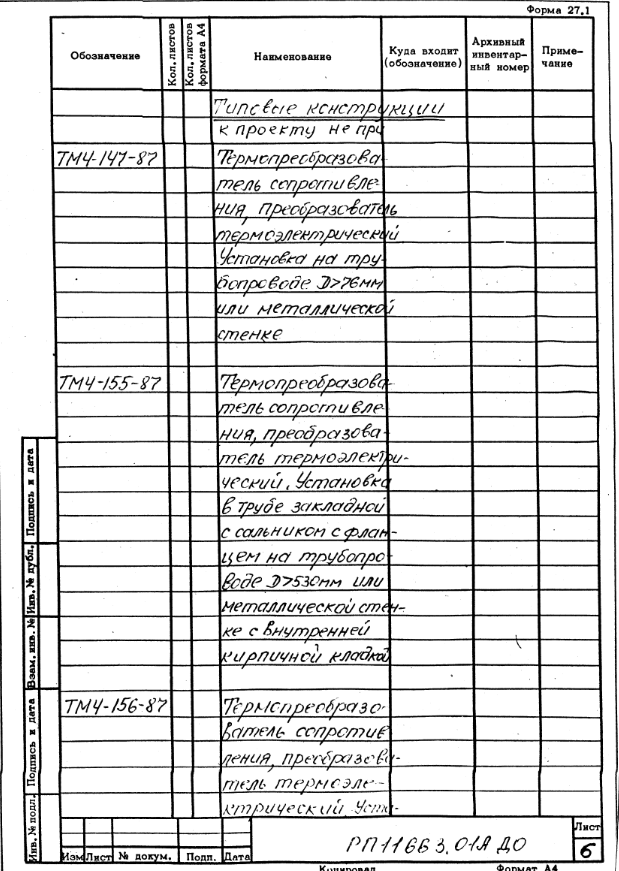 Форма 27.1
Обозначение
Кол. листов
Кол. листов формата А4
Наименование
Куда входит (обозначение)
Архивный инвентар-ный номер
Приме-чание
Типовые конструкции
к проекту не при
ТМ4-147-87 Термопреобразова-
тель сопротивле-
ния, преобразователь
термоэлектрический
Установка на тру-
бопроводе D>76мм
или металлической
стенке
ТМ4-155-87 Термопреобразова-
тель сопротивле-
ния, преобразова-
тель термоэлектри-
ческий. Установка
в трубе закладной
с сальником с флан-
цем на трубопро-
воде D>530мм или
металлической стен-
ке с внутренней
кирпичной кладкой
ТМ4-156-87 Термопреобразо-
ватель сопротив
ления, преобразова-
тель термоэле-
ктрический. Уста-
Инв. № подл. Подпись и дата Взам. инв. № Инв. № дубл. Подпись и дата
Изм Лист № докум. Подп. Дата
РП11663.01А ДО
Лист
6
Копировал Формат А4